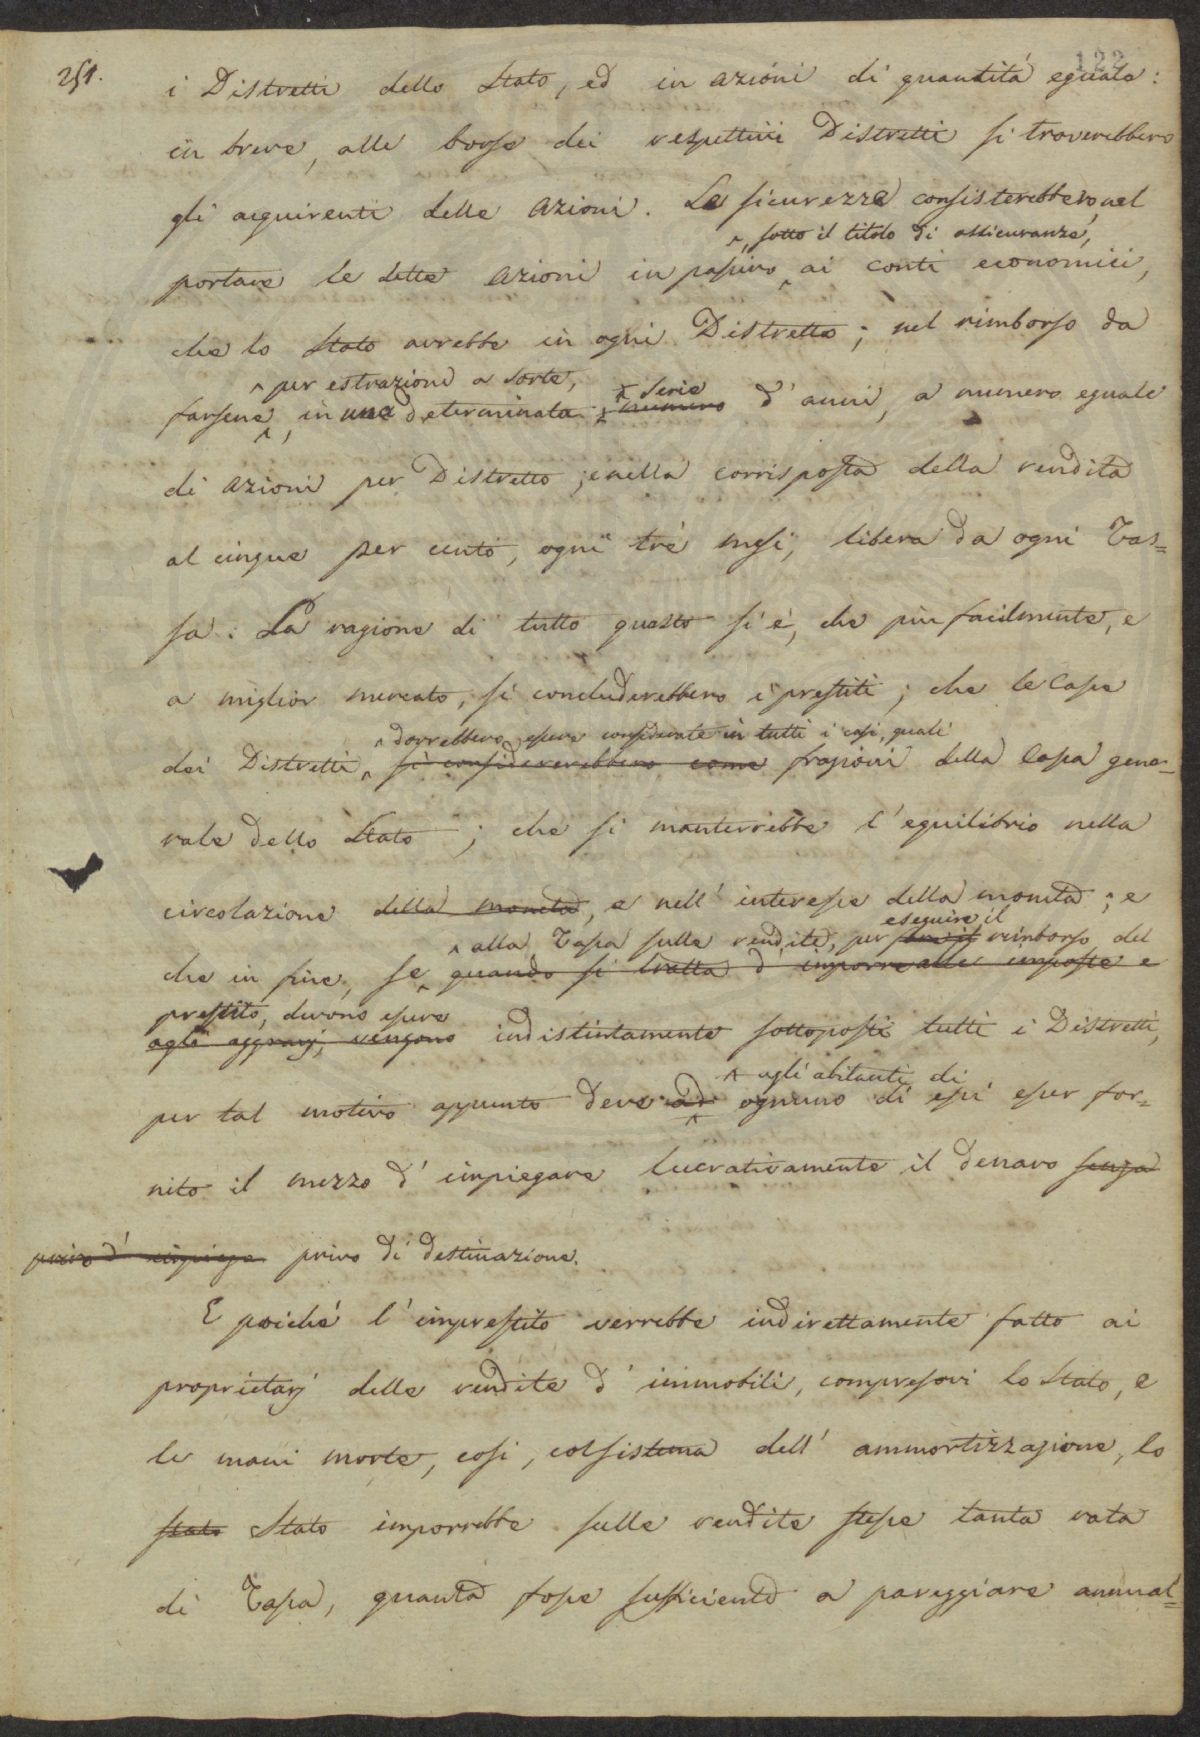 251.
122
i Distretti dello Stato, ed in azioni di quantità eguale:
in breve, alle borse dei respettivi Distretti si troverebbero
gli acquirenti delle azioni. La sicurezza consisterebbero, nel
^ sotto il titolo di assicuranza,
portare le dette azioni in passivo ^ ai conti economici,
che lo Stato avrebbe in ogni Distretto; nel rimborso da
^ per estrazione a sorte, serie
farsene ^, in una determinata numero d'anni, a numero eguale
di azioni per Distretto; e nella corrisposta della rendita
al cinque per cento, ogni tré mesi, libera da ogni Tas=
sa: La ragione di tutto questo si è, che più facilmente, e
a miglior mercato, si concluderebbero i prestiti; che le Casse
^ dovrebbero essere considerate in tutti i casi, quali
dei Distretti, ^ si considererebbero come frazioni della Cassa gene=
rale dello Stato; che si manterrebbe l'equilibrio nella
circolazione della moneta, e nell'interesse della moneta; e
^ alla Tassa sulle rendite, per fare il eseguire il rimborso del
che in fine, se ^ quando si tratta d'imporre alle imposte e
prestito, devono essere
agli aggravj, vengono indistintamente sottoposti tutti i Distretti,
^ agli abitanti di
per tal motivo appunto deve ad ^ ognuno di essi esser for=
nito il mezzo d'impiegare lucrativamente il denaro senza
privo d'impiego privo di destinazione.
E poiché l'imprestito verrebbe indirettamente fatto ai
proprietarj delle rendite d'immobili, compresovi lo Stato, e
le mani morte, così, col sistema dell'ammortizzazione, lo
stato Stato imporrebbe sulle rendite stesse tanta rata
di Tassa, quanta fosse sufficiente a pareggiare annual=